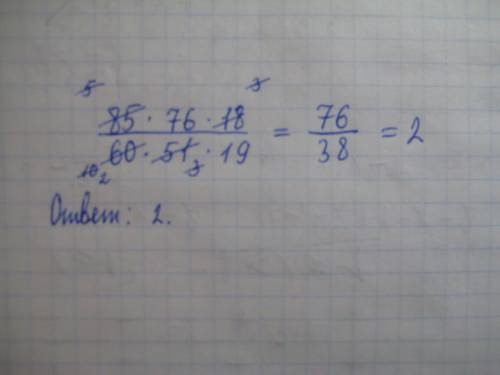 5 3
85 · 76 · 18 / 60 · 51 · 19 = 76 / 38 = 2
10 2 3
Ответ: 2.